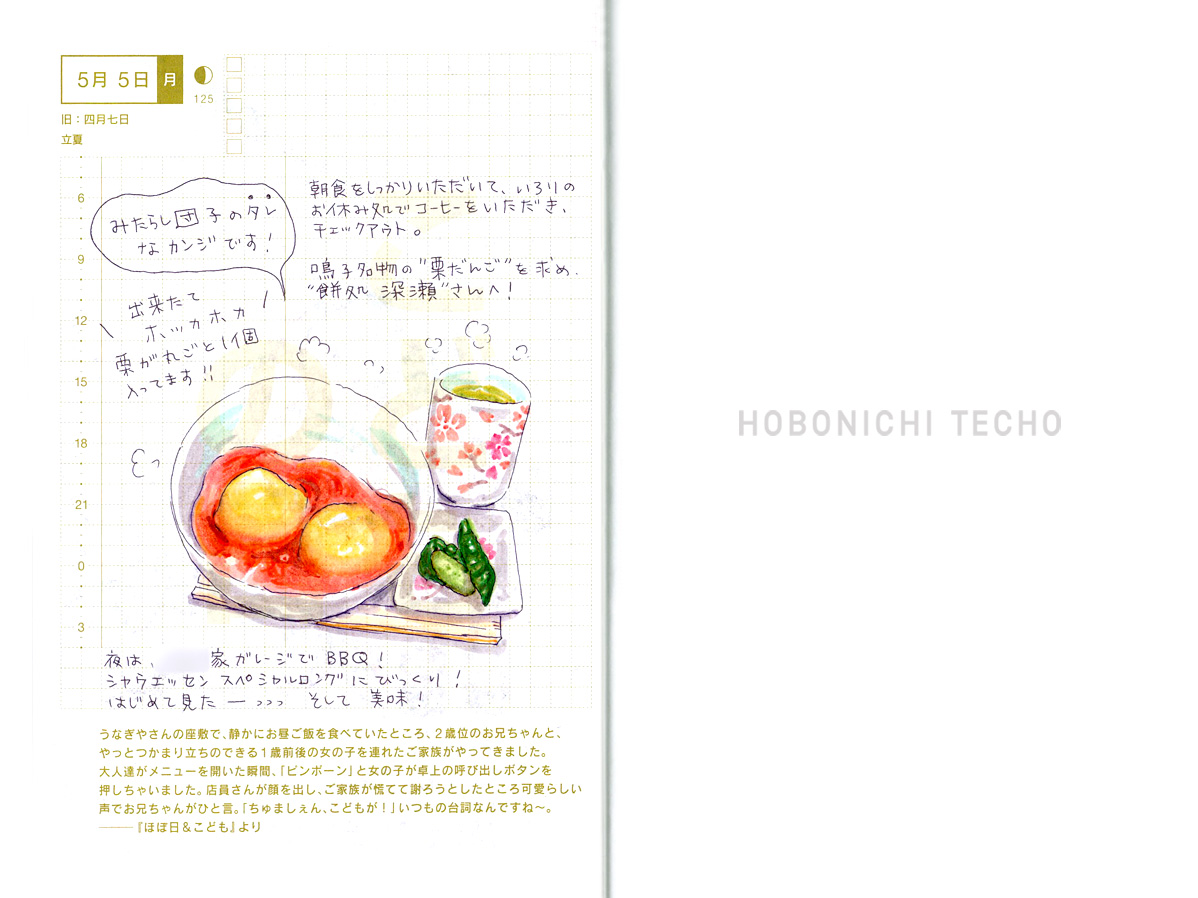 5月 5日 月
125
旧：四月七日
立夏
6
9
12
15
18
21
0
3
みたらし団子のタレ
なカンジです！
朝食をしっかりいただいて、いろりの
お休み処でコーヒーをいただき、
チェックアウト。
鳴子名物の"栗だんご"を求め、
"餅処 深瀬"さんへ！
出来たて
ホッカホカ
栗が丸ごと1個
入ってます!!
夜は、 家ガレージでBBQ！
シャウエッセン スペシャルロングにびっくり！
はじめて見たーっっっ そして 美味！
うなぎやさんの座敷で、静かにお昼ご飯を食べていたところ、2歳位のお兄ちゃんと、
やっとつかまり立ちのできる1歳前後の女の子を連れたご家族がやってきました。
大人達がメニューを開いた瞬間、「ピンポーン」と女の子が卓上の呼び出しボタンを
押しちゃいました。店員さんが顔を出し、ご家族が慌てて謝ろうとしたところ可愛らしい
声でお兄ちゃんがひと言。「ちゅましぇん、こどもが！」いつもの台詞なんですね〜。
───『ほぼ日＆こども』より
HOBONICHI TECHO